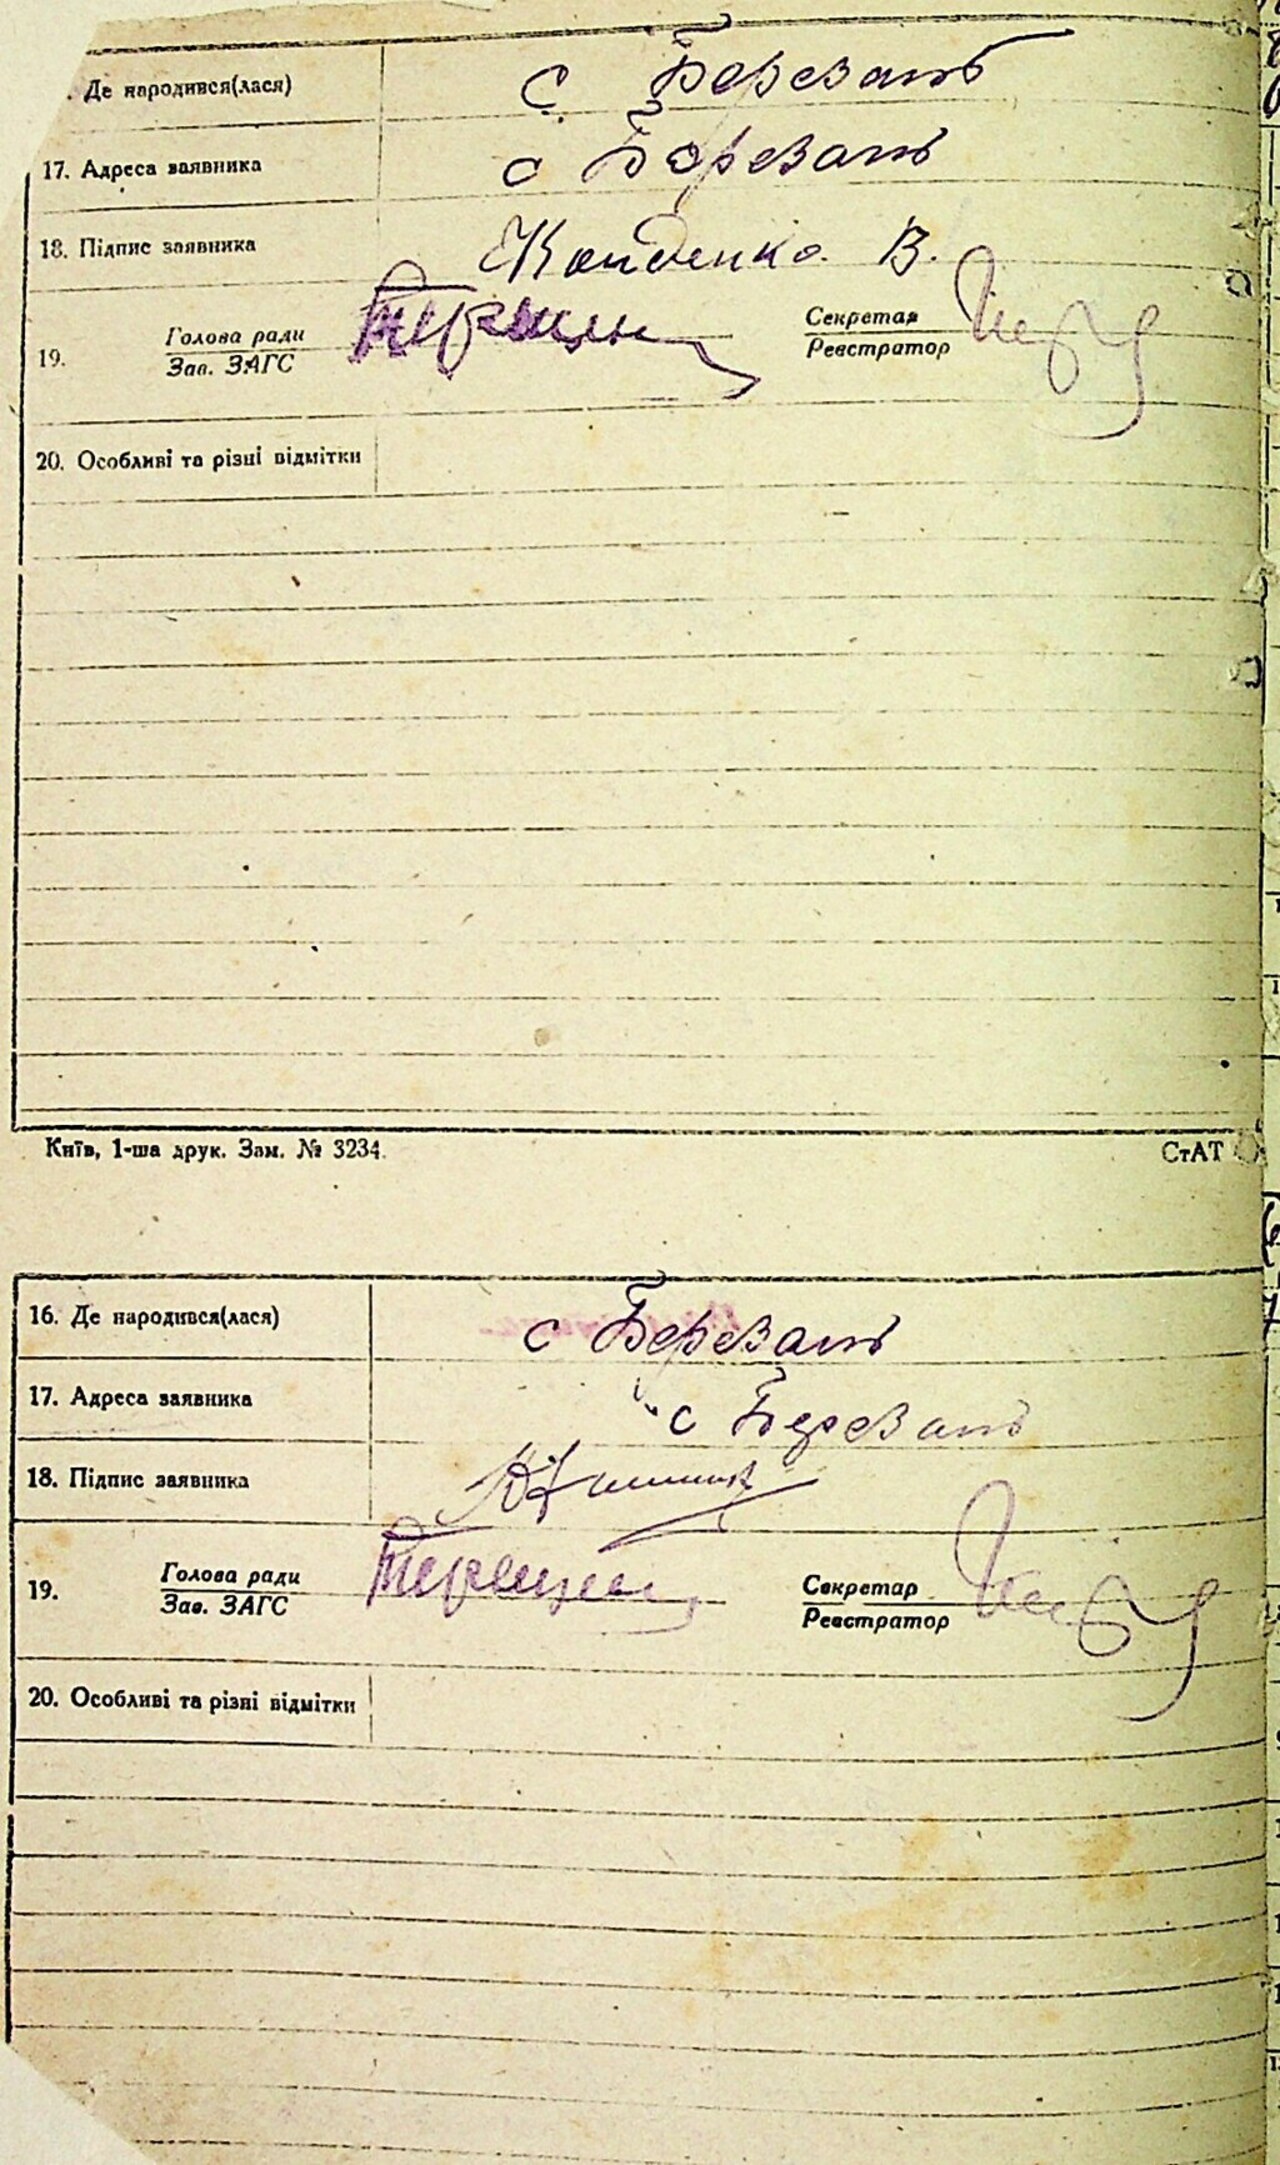 . Де народився(лася) с Березань
17. Адреса заявника с Березань
18. Підпис заявника В.
19. Голова ради Секретар
Зав. ЗАГС Реєстратор
20. Особливі та різні відмітки
Київ, 1-ша друк. Зам. № 3234. СтАТ
16. Де народився(лася) с Березань
17. Адреса заявника с Березань
18. Підпис заявника
19. Голова ради Секретар
Зав. ЗАГС Реєстратор
20. Особливі та різні відмітки